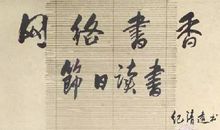 网络書香
節日读書
纪清远书